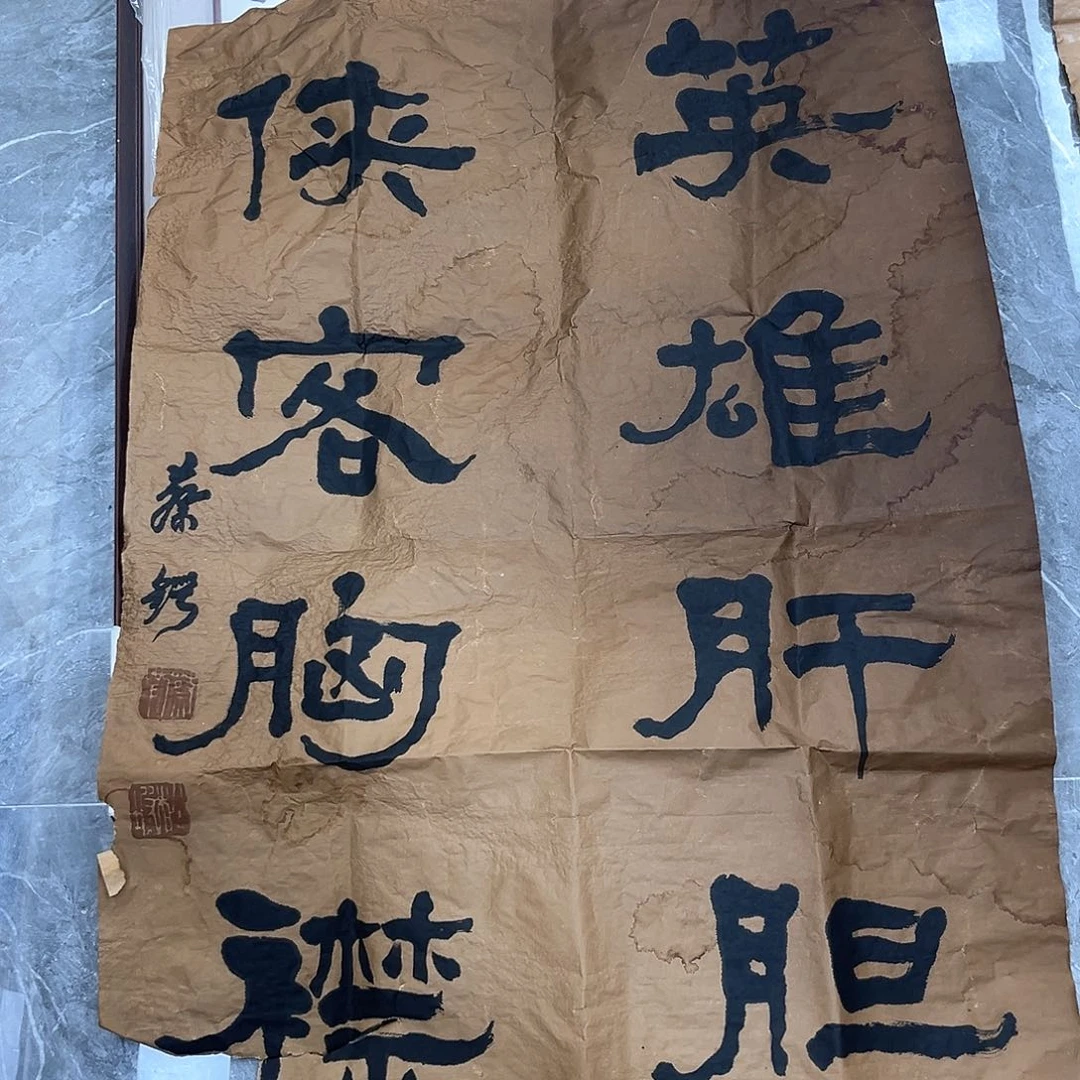 英雄肝胆
侠客胸襟
蔡锷